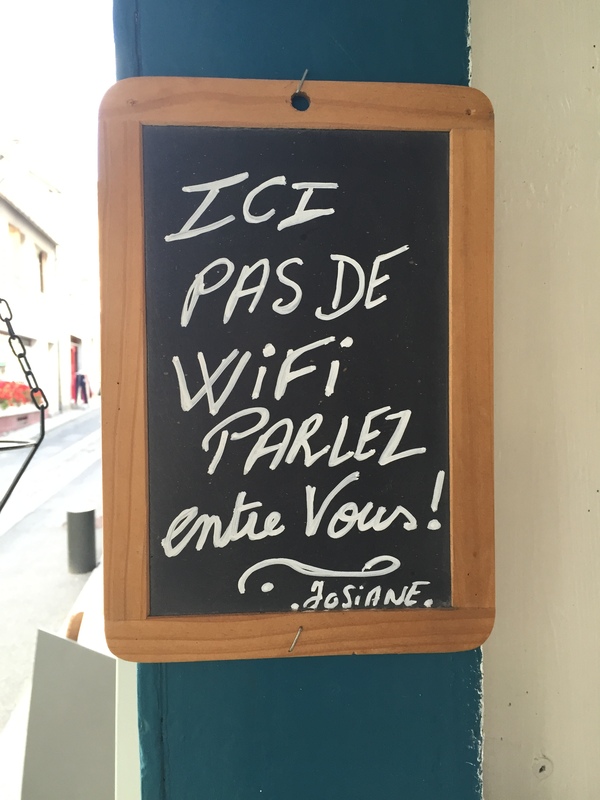 ICI
PAS DE
WiFi
PARLEZ
entre Vous!
.JOSiANE.